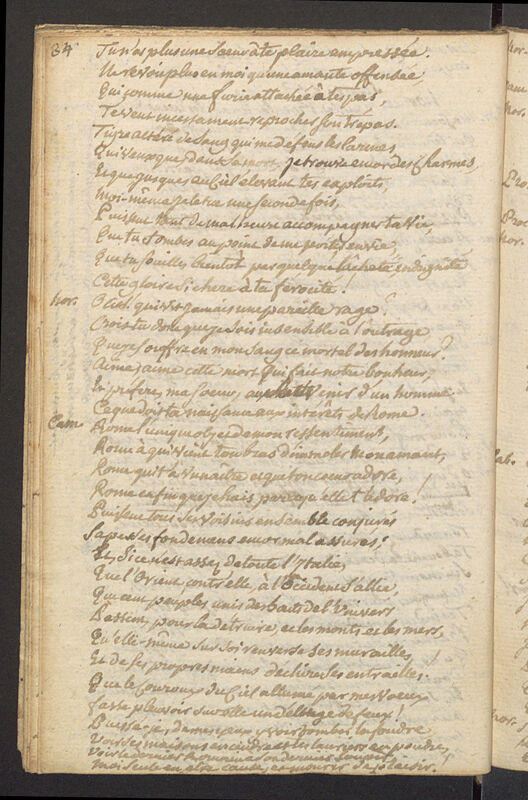 84
Tu n'as plus une Soeur à te plaire empressée.
Ne revois plus en moi qu'une amante offensée,
Qui comme une furie attachée à tes pas,
Te veut incessament reprocher son trépas.
Tigre altéré de Sang qui me défens les larmes
Qui veux que dans Sa mort je trouve encor des Charmes,
Et que jusques au Ciel élevant tes exploits,
Moi-même je le tue une seconde fois,
Puissent tant de malheurs accompagner ta Vie,
Que tu tombes au point de me porter envie,
Que tu souilles bientôt par quelque lâcheté
Cette gloire Si chere à ta férocité!
hor. O Ciel! qui vit jamais une pareille rage?
Crois tu donc que je sois insensible à l'outrage
Que je Souffre en mon Sang ce mortel deshonneur?
Aime, aime cette mort qui fait notre bonheur,
Et préfere, ma Soeur, au d'un homme
Ce que doit ta naissance aux intérêts de Rome.
Cam. Rome l'unique objet de mon ressentiment,
Rome à qui vient ton bras d'immoler mon amant,
Rome qui t'a vu naître et que ton coeur adore,
Rome enfin que je hais parce qu'elle t'adore!
Puissent tous Ses Voisins ensemble conjurés
Saper Ses fondemens encor mal assurés;
Et, Si ce n'est assez de toute l'Italie,
Que l'Orient contr'elle, à l'Occident S'allie,
Que cent peuples unis des bouts de l'Univers
Passent, pour la detruire, et les monts et les mers,
Qu'elle-même Sur Soi renverse Ses murailles,
Et de Ses propres mains déchire Ses entrailles.
Que le Couroux du Ciel allumé par mes Voeux
fasse pleuvoir Sur elle un déluge de feux!
Puisse-je, de mes yeux y voir tomber la foudre
Voir Ses maisons en cendre et tes lauriers en poudre,
Voir le dernier Romain à Son dernier Soupir,
Moi Seule en être cause, et mourir de plaisir.